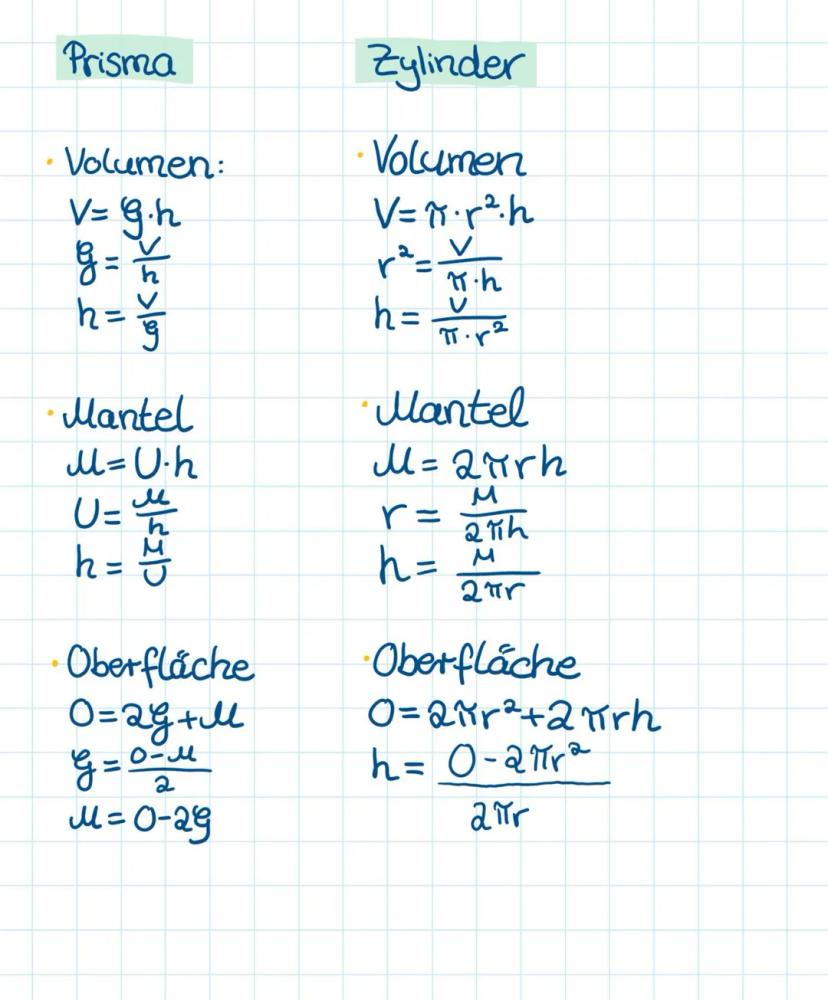 Prisma
· Volumen:
V = g·h
g = V/h
h = V/g
· Mantel
M = U·h
U = M/h
h = M/U
· Oberfläche
O = 2g + M
g = O-M/2
M = O-2g
Zylinder
· Volumen
V = π·r²·h
r² = V/π·h
h = V/π·r²
· Mantel
M = 2πrh
r = M/2πh
h = M/2πr
· Oberfläche
O = 2πr² + 2πrh
h = O - 2πr²/2πr